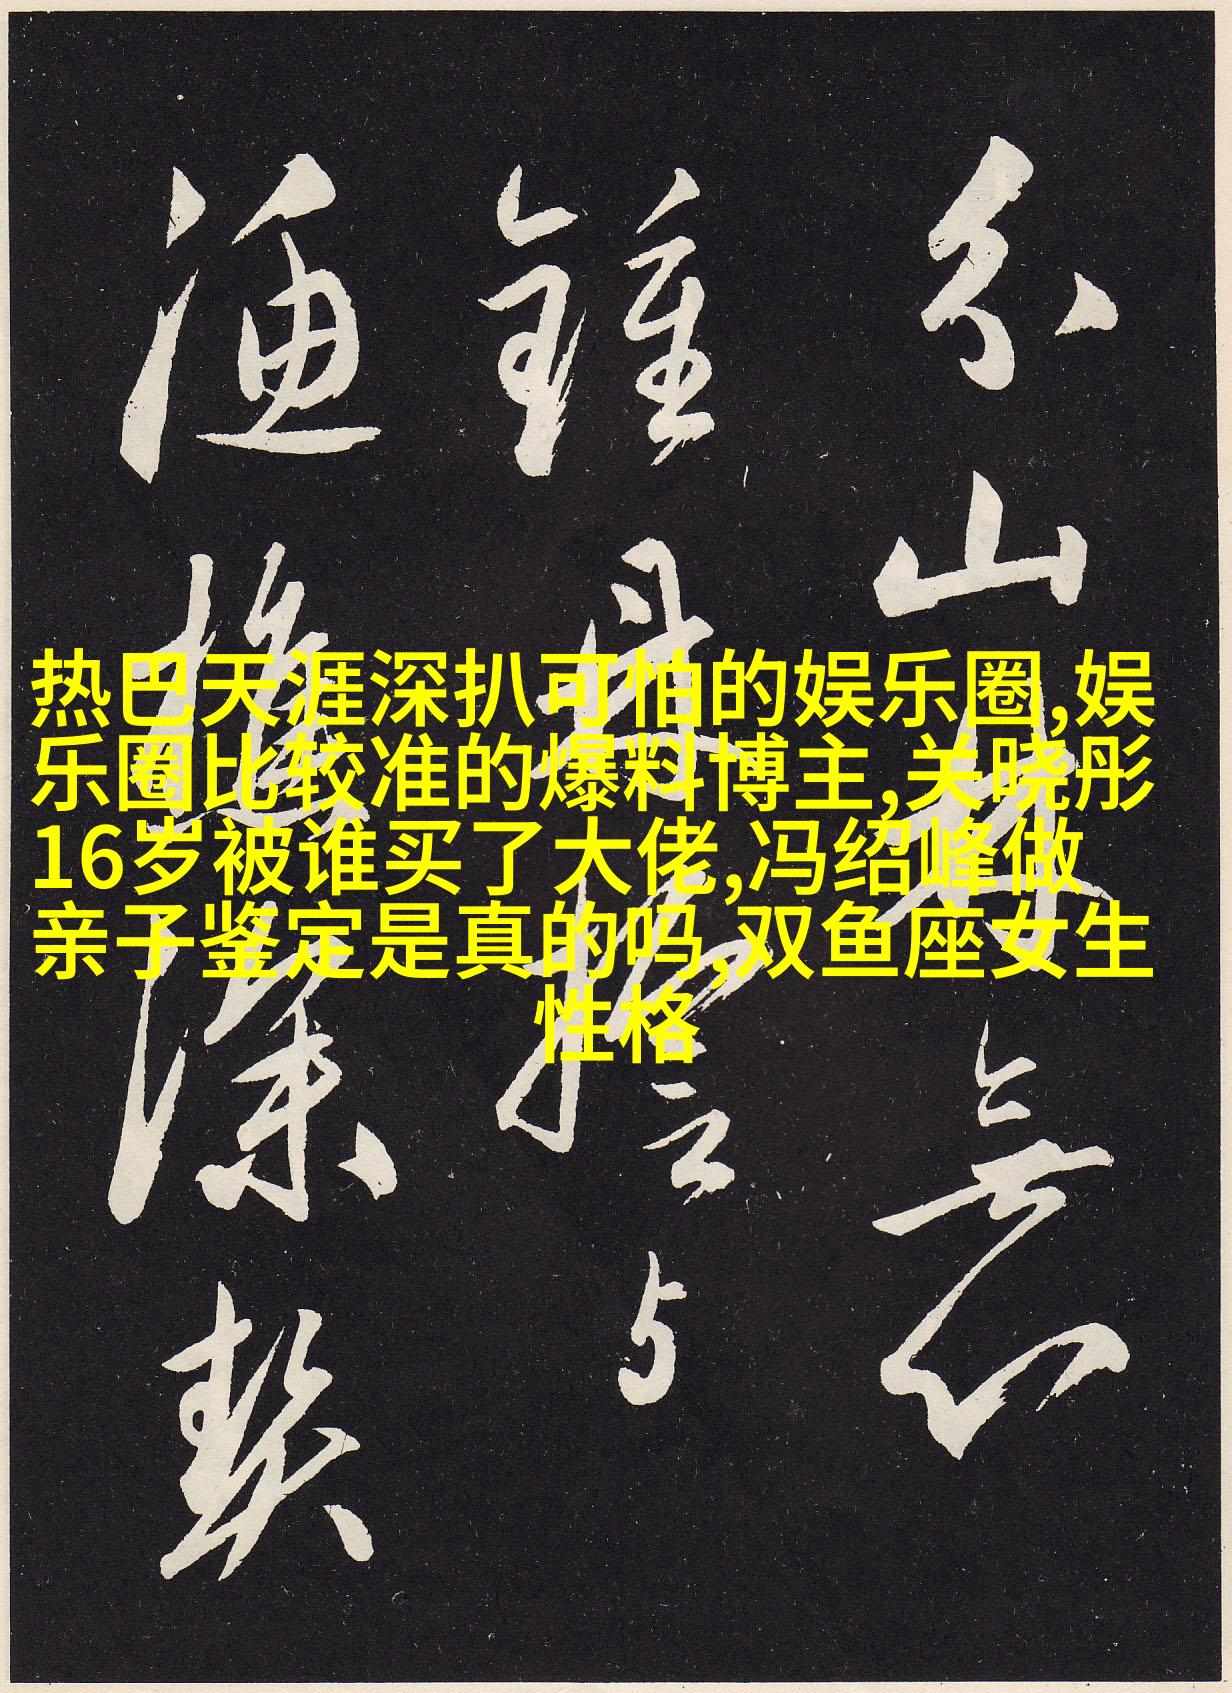 热巴天涯深扒可怕的娱乐圈,娱
乐圈比较准的爆料博主,关晓彤
16岁被谁买了大佬,冯绍峰做
亲子鉴定是真的吗,双鱼座女生
性格
山林
鍾与
漁樵深契